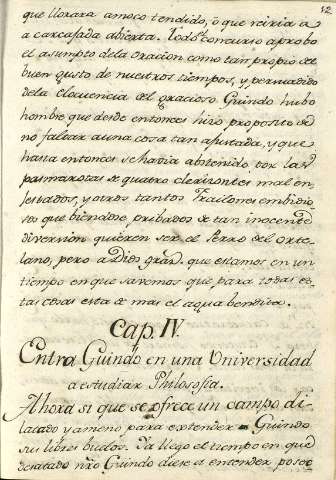 12
que llorara a moco tendido, ò que reiria a
a carcajada abierta. Todo el concurso aprobo
el asumpto de la oracion como tan propio del
buen gusto de nuestros tiempos, y persuadido
de la elocuencia del gracioso Guindo hubo
hombre que desde entonces hizo proposito de
no faltar a una cosa tan ajustada, y que
hasta entonces se habia abstenido por las
pasmarotas de quatro clerizontes mal en
testados, y otros tantos Frailones embidio
sos que biendose pribados de tan inocente
diversion quieren ser el Perro del Orte
lano, pero a Dios gras. que estamos en un
tiempo en que saremos que para todas es
tas cosas esta de mas el agua bendita.
Cap. IV.
Entra Guindo en una Universidad
a estudiar Philosofia.
Ahora si que se ofrece un campo di
latado y ameno para extender Guindo
sus libres buelos. Ya llego el tiempo en que
desatado nro Guindo diese a entender posee